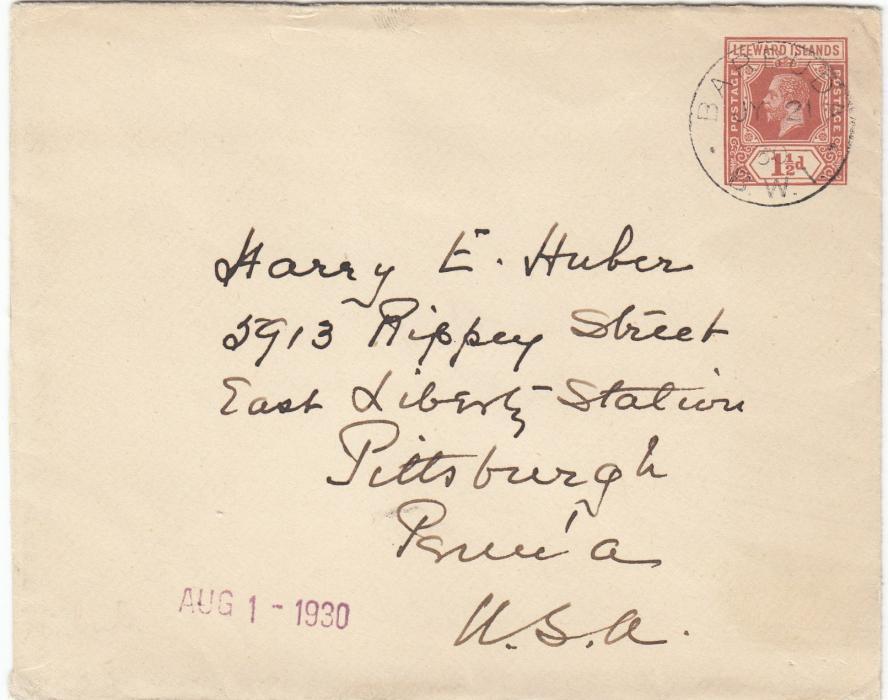 LEEWARD ISLANDS
POSTAGE POSTAGE
1½d
BARBUDA
JY 21
30
B.W.I.
Harry E. Huber
5913 Rippey Street
East Liberty Station
Pittsburgh
Penn'a
U.S.A.
AUG 1 - 1930